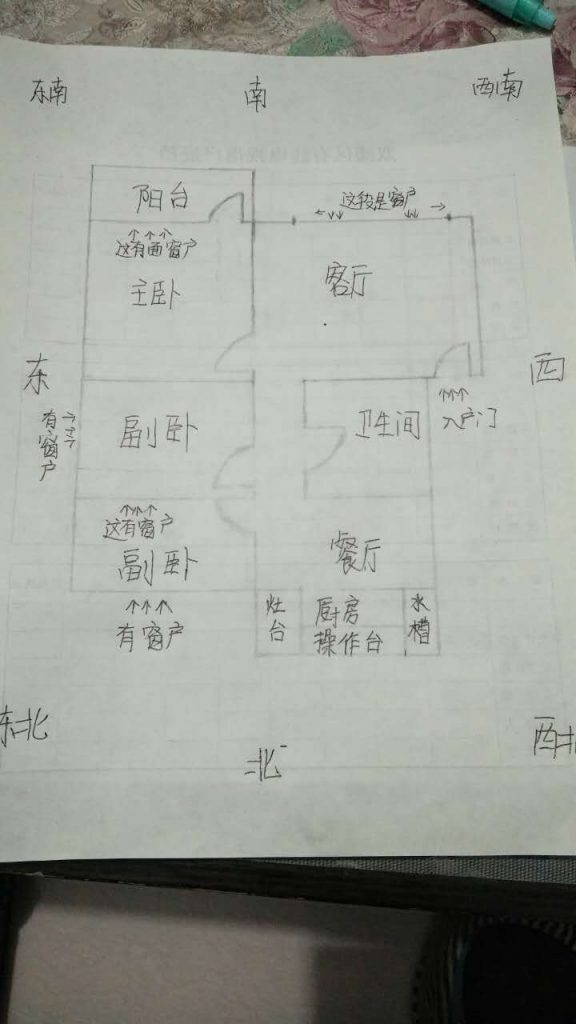 东南 南 西南
阳台
这段是窗户
这有面窗户
主卧
客厅
东
西
有窗户
副卧
卫生间
入户门
这有窗户
副卧
餐厅
有窗户
灶台
厨房
操作台
水槽
东北
北
西北